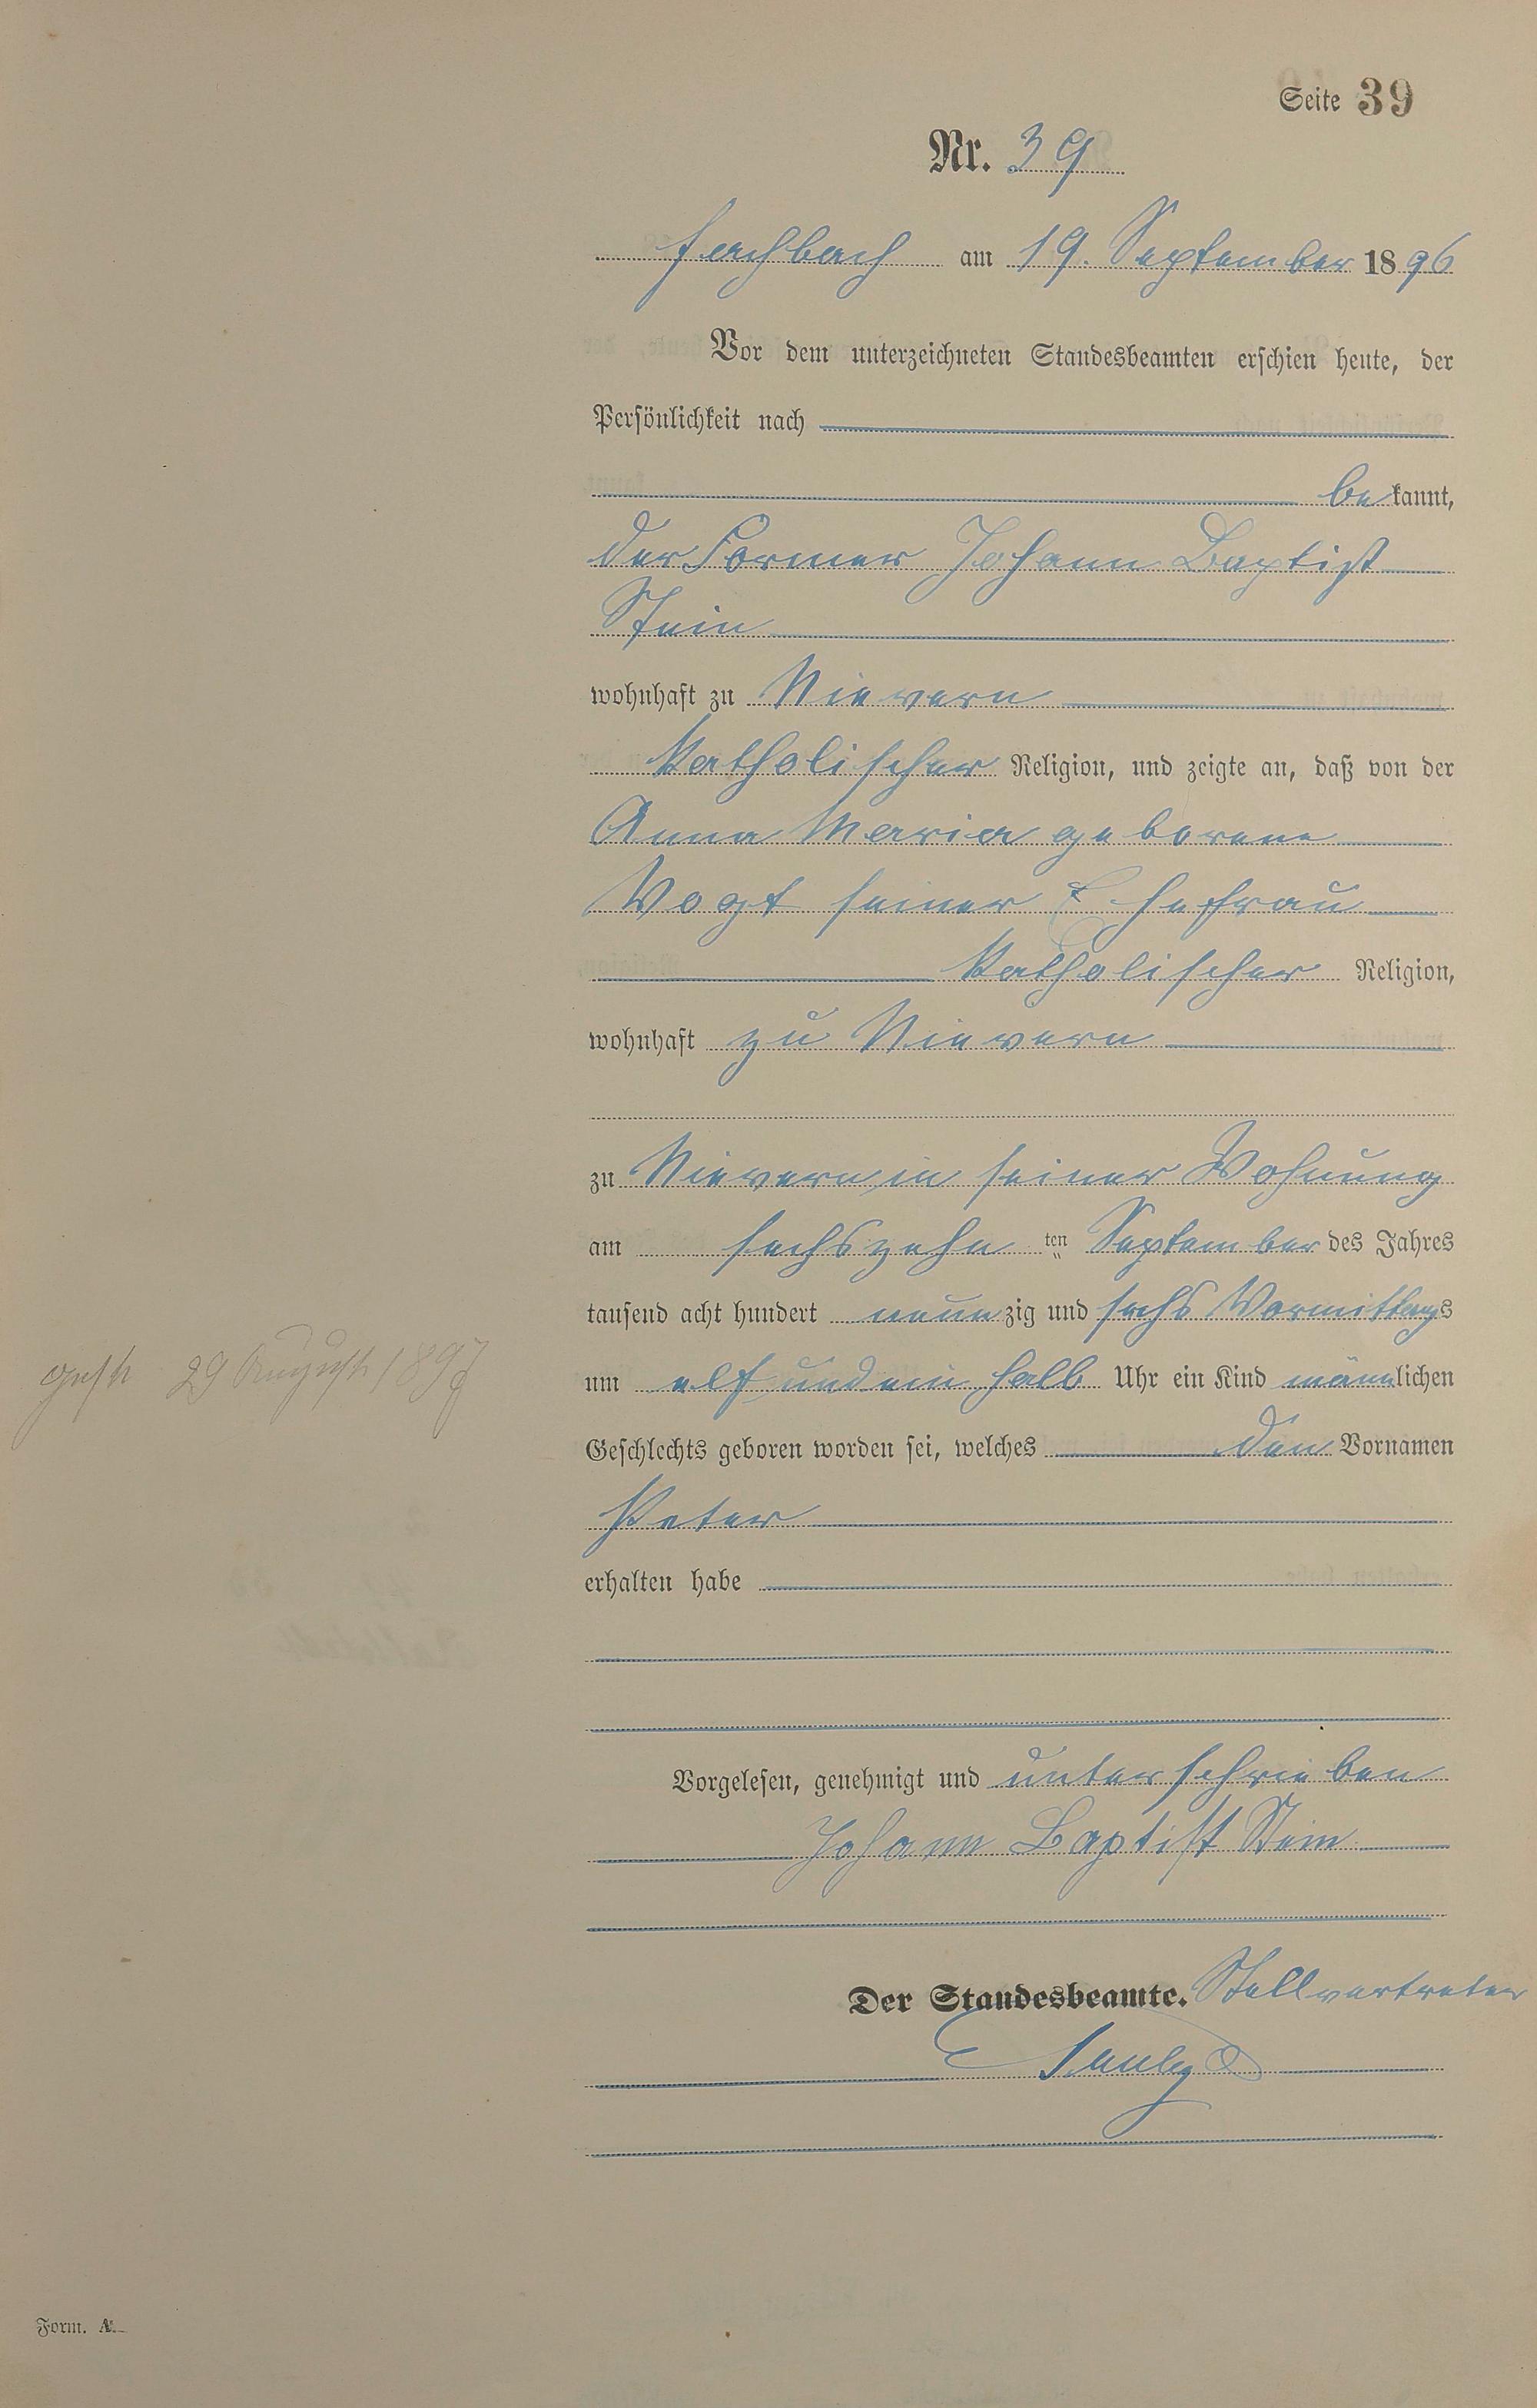 Seite 39
Nr. 39
Fachbach am 19. September 1896
Vor dem unterzeichneten Standesbeamten erschien heute, der
Persönlichkeit nach
bekannt,
der Former Johann Baptist
Stein
wohnhaft zu Nievern
katholischer Religion, und zeigte an, daß von der
Anna Maria geborene
Vogt seiner Ehefrau
katholischer Religion,
wohnhaft zu Nievern
zu Nievern in seiner Wohnung
am sechszehn ten September des Jahres
tausend acht hundert neunzig und sechs Vormittags
gest. 29 August 1897
um elf und ein halb Uhr ein Kind männlichen
Geschlechts geboren worden sei, welches den Vornamen
Peter
erhalten habe
Vorgelesen, genehmigt und unterschrieben
Johann Baptist Stein
Der Standesbeamte. Stellvertreter
Form. A.